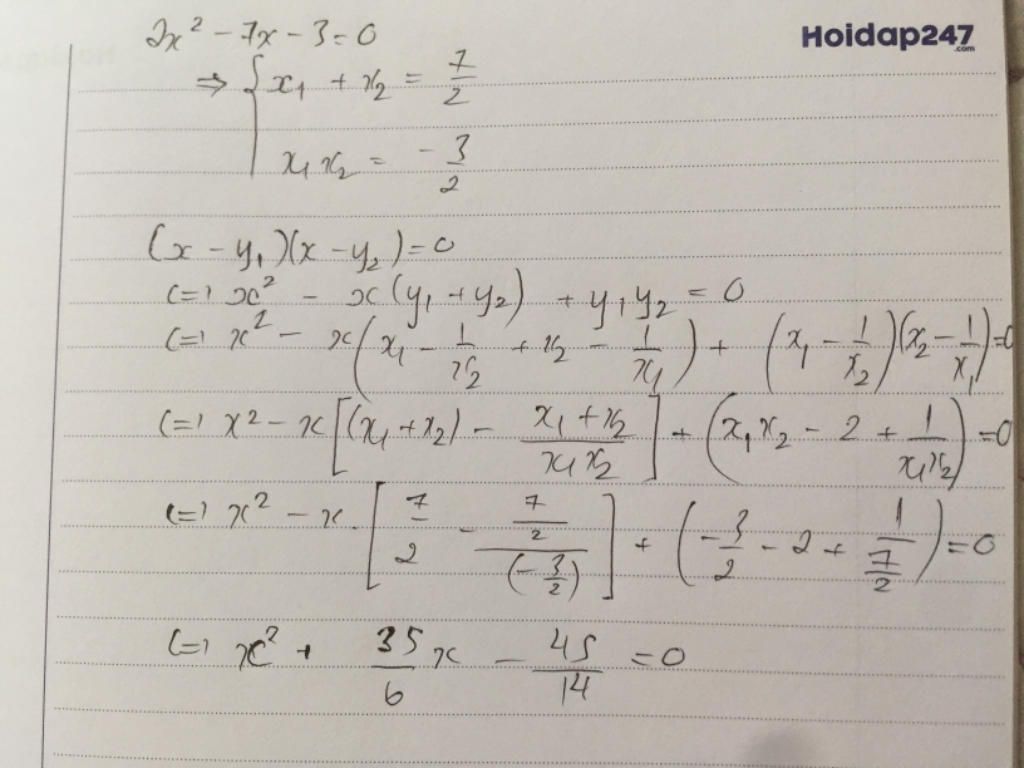 Hoidap247
.com
2x² - 7x - 3 = 0
⇒ { x₁ + x₂ = 7/2
x₁x₂ = -3/2
(x - y₁)(x - y₂) = 0
(=) x² - x(y₁ + y₂) + y₁y₂ = 0
(=) x² - x(x₁ - 1/x₂ + x₂ - 1/x₁) + (x₁ - 1/x₂)(x₂ - 1/x₁) = 0
(=) x² - x[(x₁ + x₂) - (x₁ + x₂)/(x₁x₂)] + (x₁x₂ - 2 + 1/(x₁x₂)) = 0
(=) x² - x.[7/2 - (7/2)/(-3/2)] + (-3/2 - 2 + 1/(7/2)) = 0
(=) x² + 35/6 x - 45/14 = 0